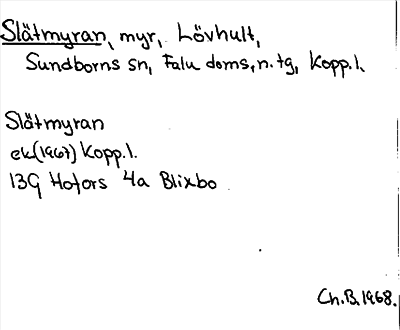 Slåtmyran, myr, Lövhult,
Sundborns sn, Falu doms. n. tg, Kopp. l.
Slåtmyran
ek (1967) Kopp. l.
13G Hofors 4a Blixbo
Ch. B. 1968.